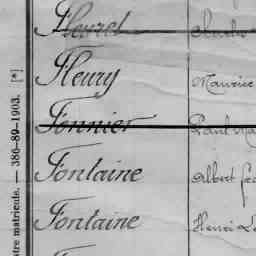 Fleuret Charles
Fleury Maurice
Fonnier Paul
Fontaine Albert
Fontaine Henri
matricule. — 386-89-1903. [*]